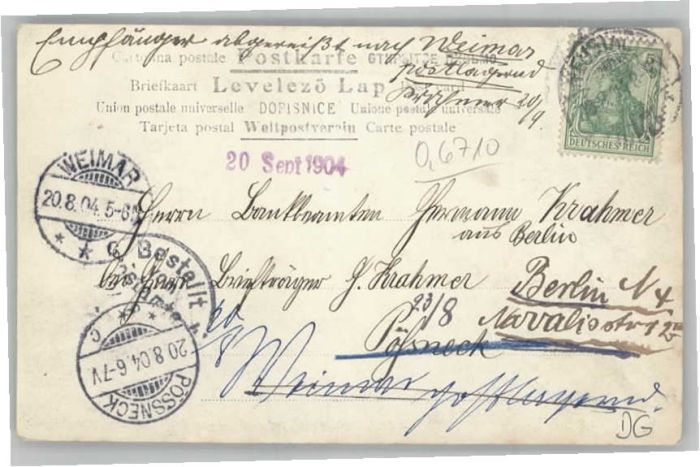 Empfänger abgereißt nach Weimar
postlagernd
20/9
Carte postale Postkarte
Briefkaart Levelező Lap
Union postale universelle DOPISNICE Unione postale universale
Tarjeta postal Weltpostverein Carte postale
DEUTSCHES REICH
20 Sept 1904
0,6710
WEIMAR
20.8.04.5-6
Herrn Bankbeamten Hermann Krahmer
aus Berlin
bei Herrn Briefträger H. Krahmer
Berlin N 4
23/8
Pößneck
Bestellt
20.8.04.6-7V
PÖSSNECK
Weimar postlagernd.
DG